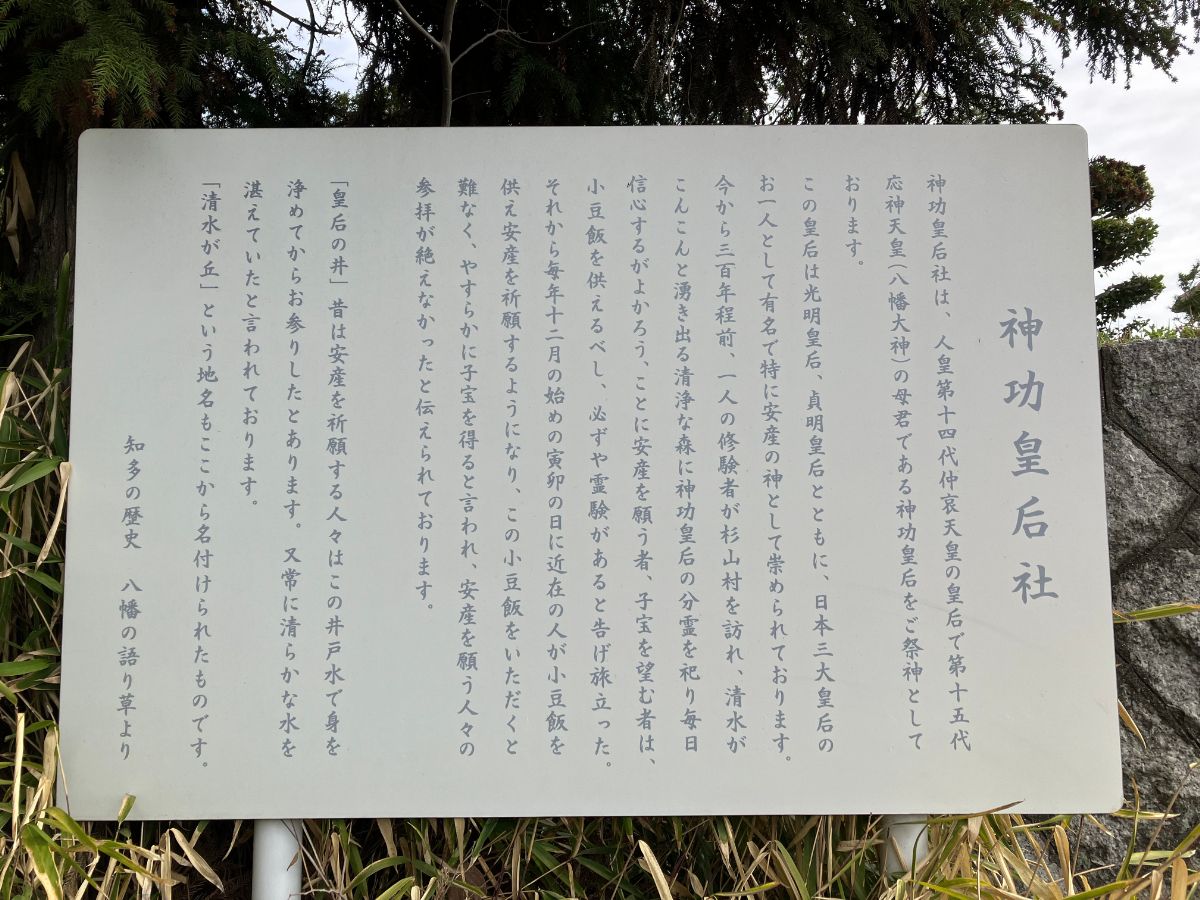 神功皇后社
神功皇后社は、人皇第十四代仲哀天皇の皇后で第十五代
応神天皇(八幡大神)の母君である神功皇后をご祭神として
おります。
この皇后は光明皇后、貞明皇后とともに、日本三大皇后の
お一人として有名で特に安産の神として崇められております。
今から三百年程前、一人の修験者が杉山村を訪れ、清水が
こんこんと湧き出る清浄な森に神功皇后の分霊を祀り毎日
信心するがよかろう、ことに安産を願う者、子宝を望む者は、
小豆飯を供えるべし、必ずや霊験があると告げ旅立った。
それから毎年十二月の始めの寅卯の日に近在の人が小豆飯を
供え安産を祈願するようになり、この小豆飯をいただくと
難なく、やすらかに子宝を得ると言われ、安産を願う人々の
参拝が絶えなかったと伝えられております。
「皇后の井」昔は安産を祈願する人々はこの井戸水で身を
浄めてからお参りしたとあります。又常に清らかな水を
湛えていたと言われております。
「清水が丘」という地名もここから名付けられたものです。
知多の歴史 八幡の語り草より